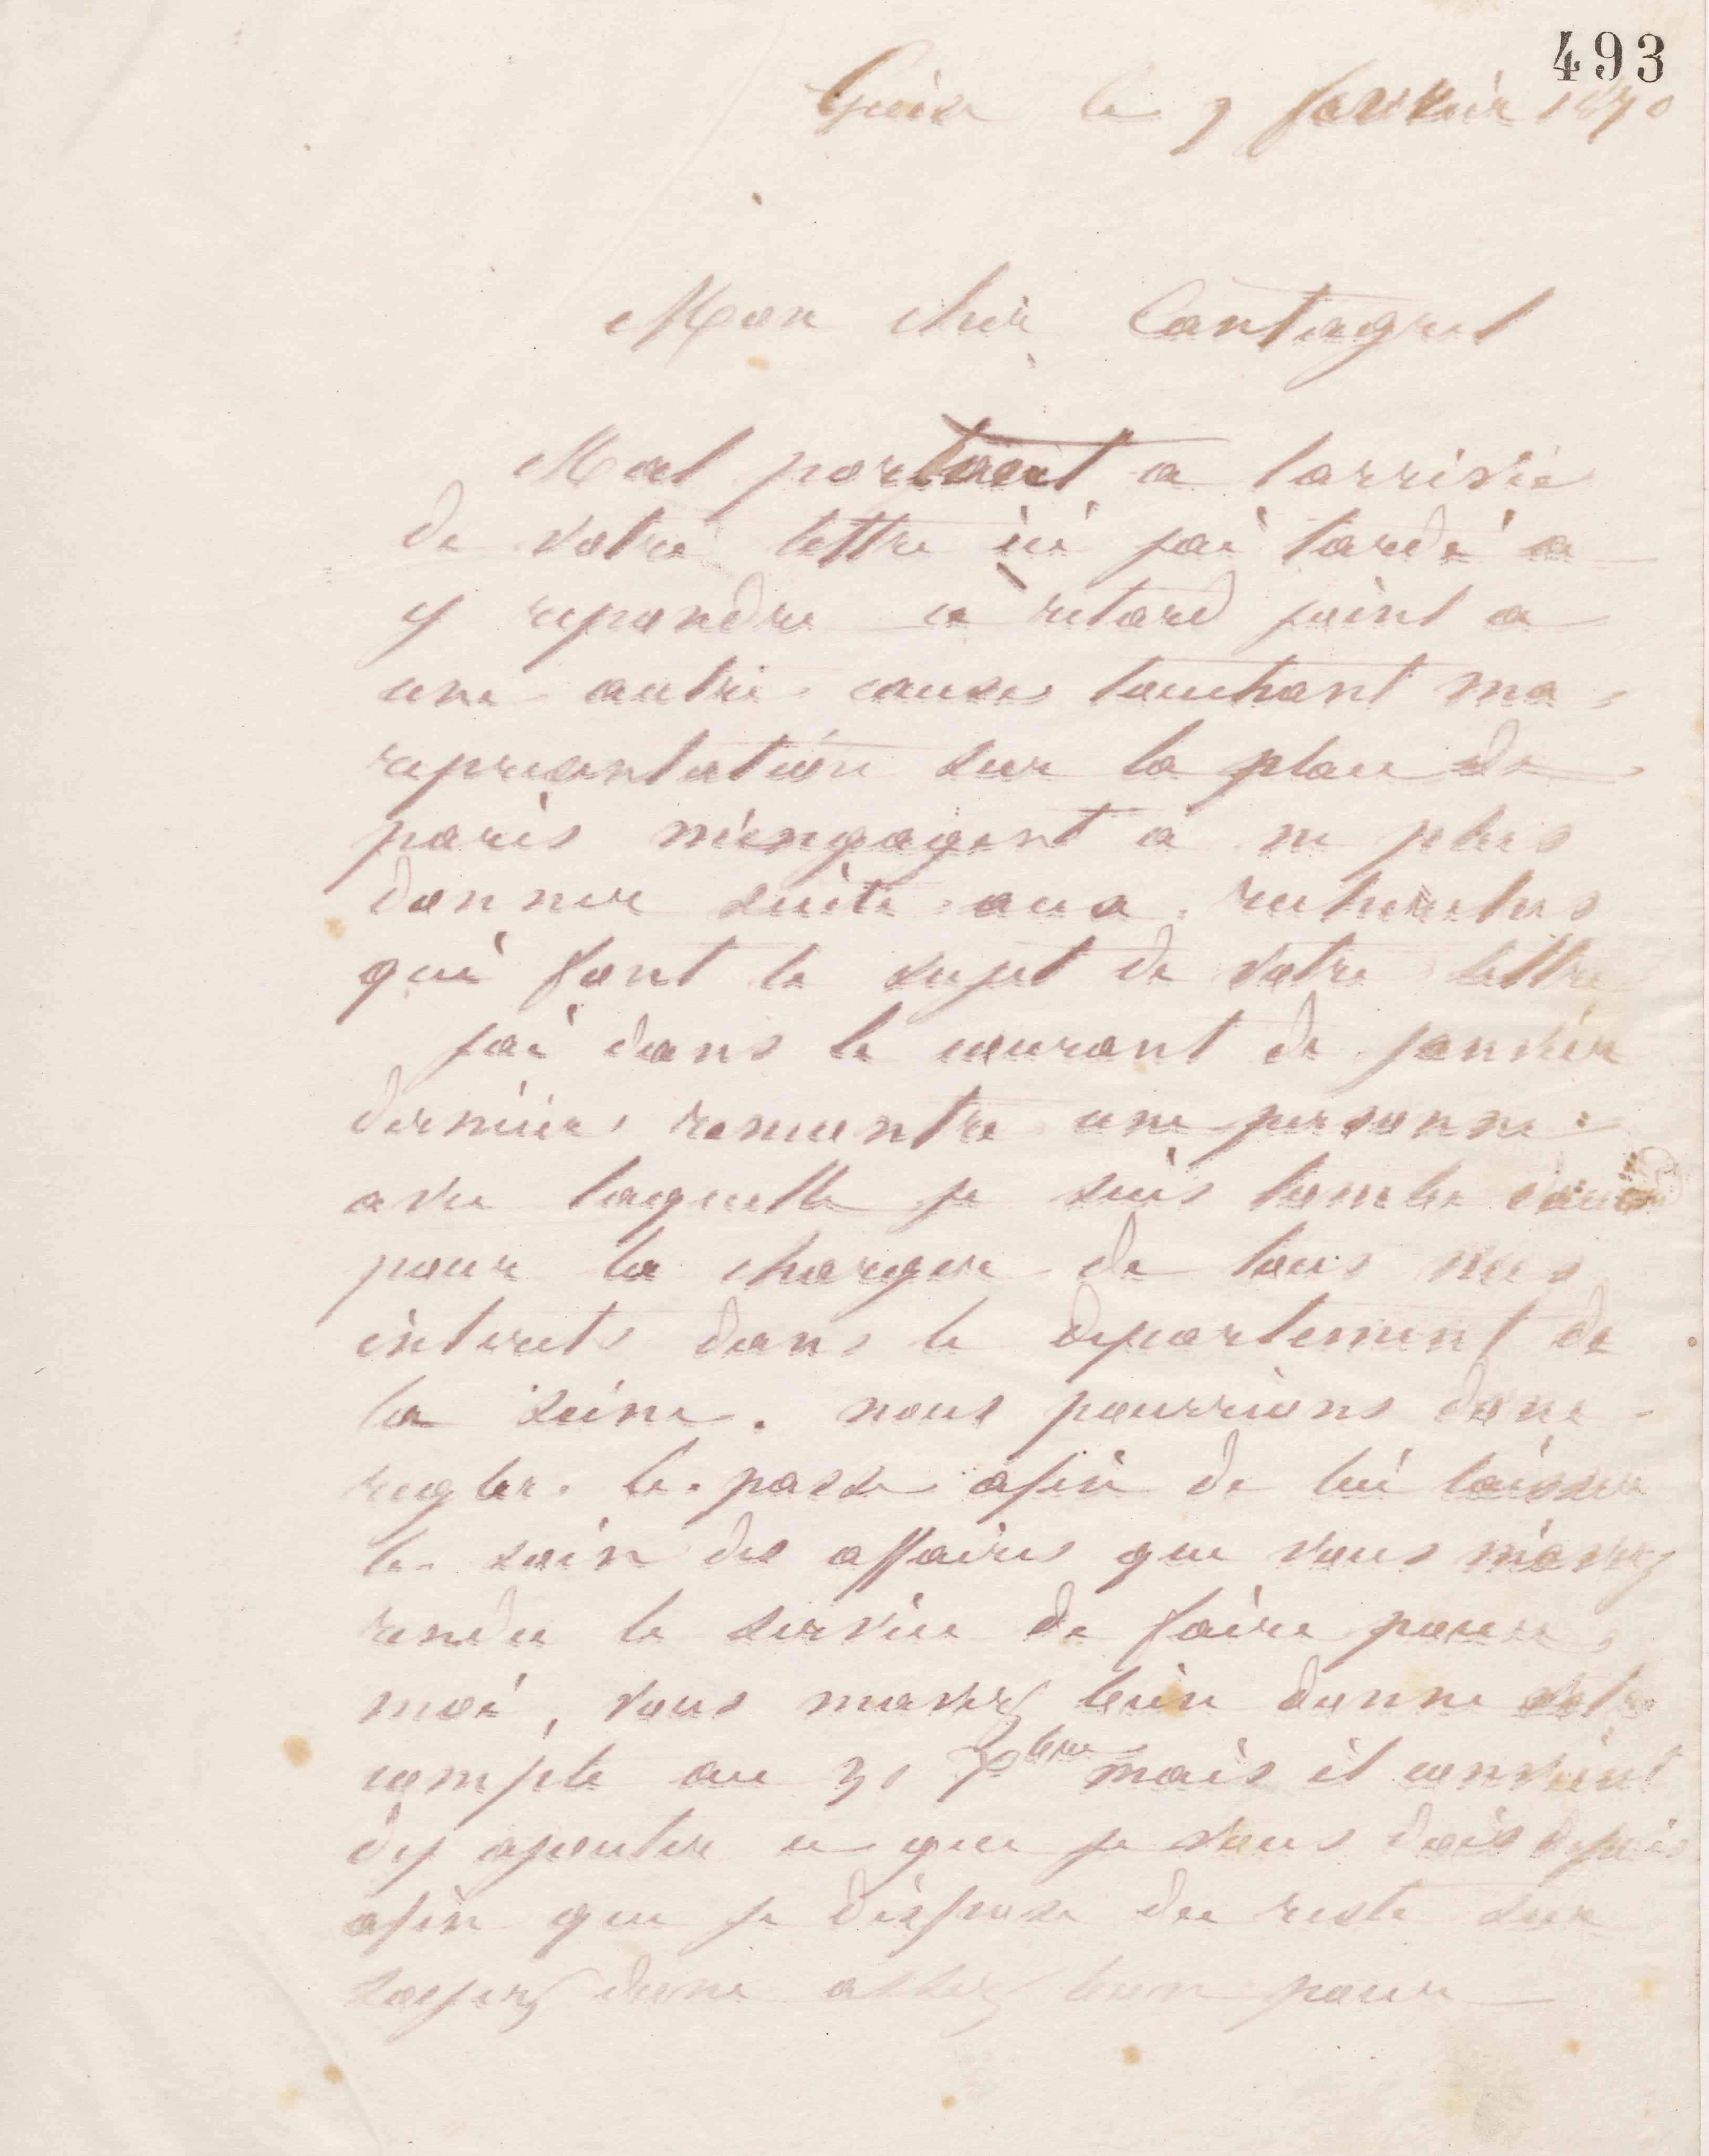 493
Guise le 9 fevrier 1870
Mon cher Cantagrel
Mal portant a larrivée
de votre lettre ici jai tardé a
y repondre ce retard joint a
une autre cause touchant ma
representation sur la place de
paris mengagent a ne plus
donner suite aux recherches
qui font le sujet de votre lettre
jai dans le courant de janvier
dernier rencontre une personne
avec laquelle je suis tombe
pour la charger de tous mes
interets dans le departement de
la Seine. nous pourrions donc
regler le passe afin de lui laisser
le soin des affaires que vous m'avez
rendu le service de faire pour
moi, vous mavez bien donne votre
compte au 31 Xbre mais il convient
dy ajouter ce que je vous dois depuis
afin que je dispose du reste
soyez donc assez bon pour